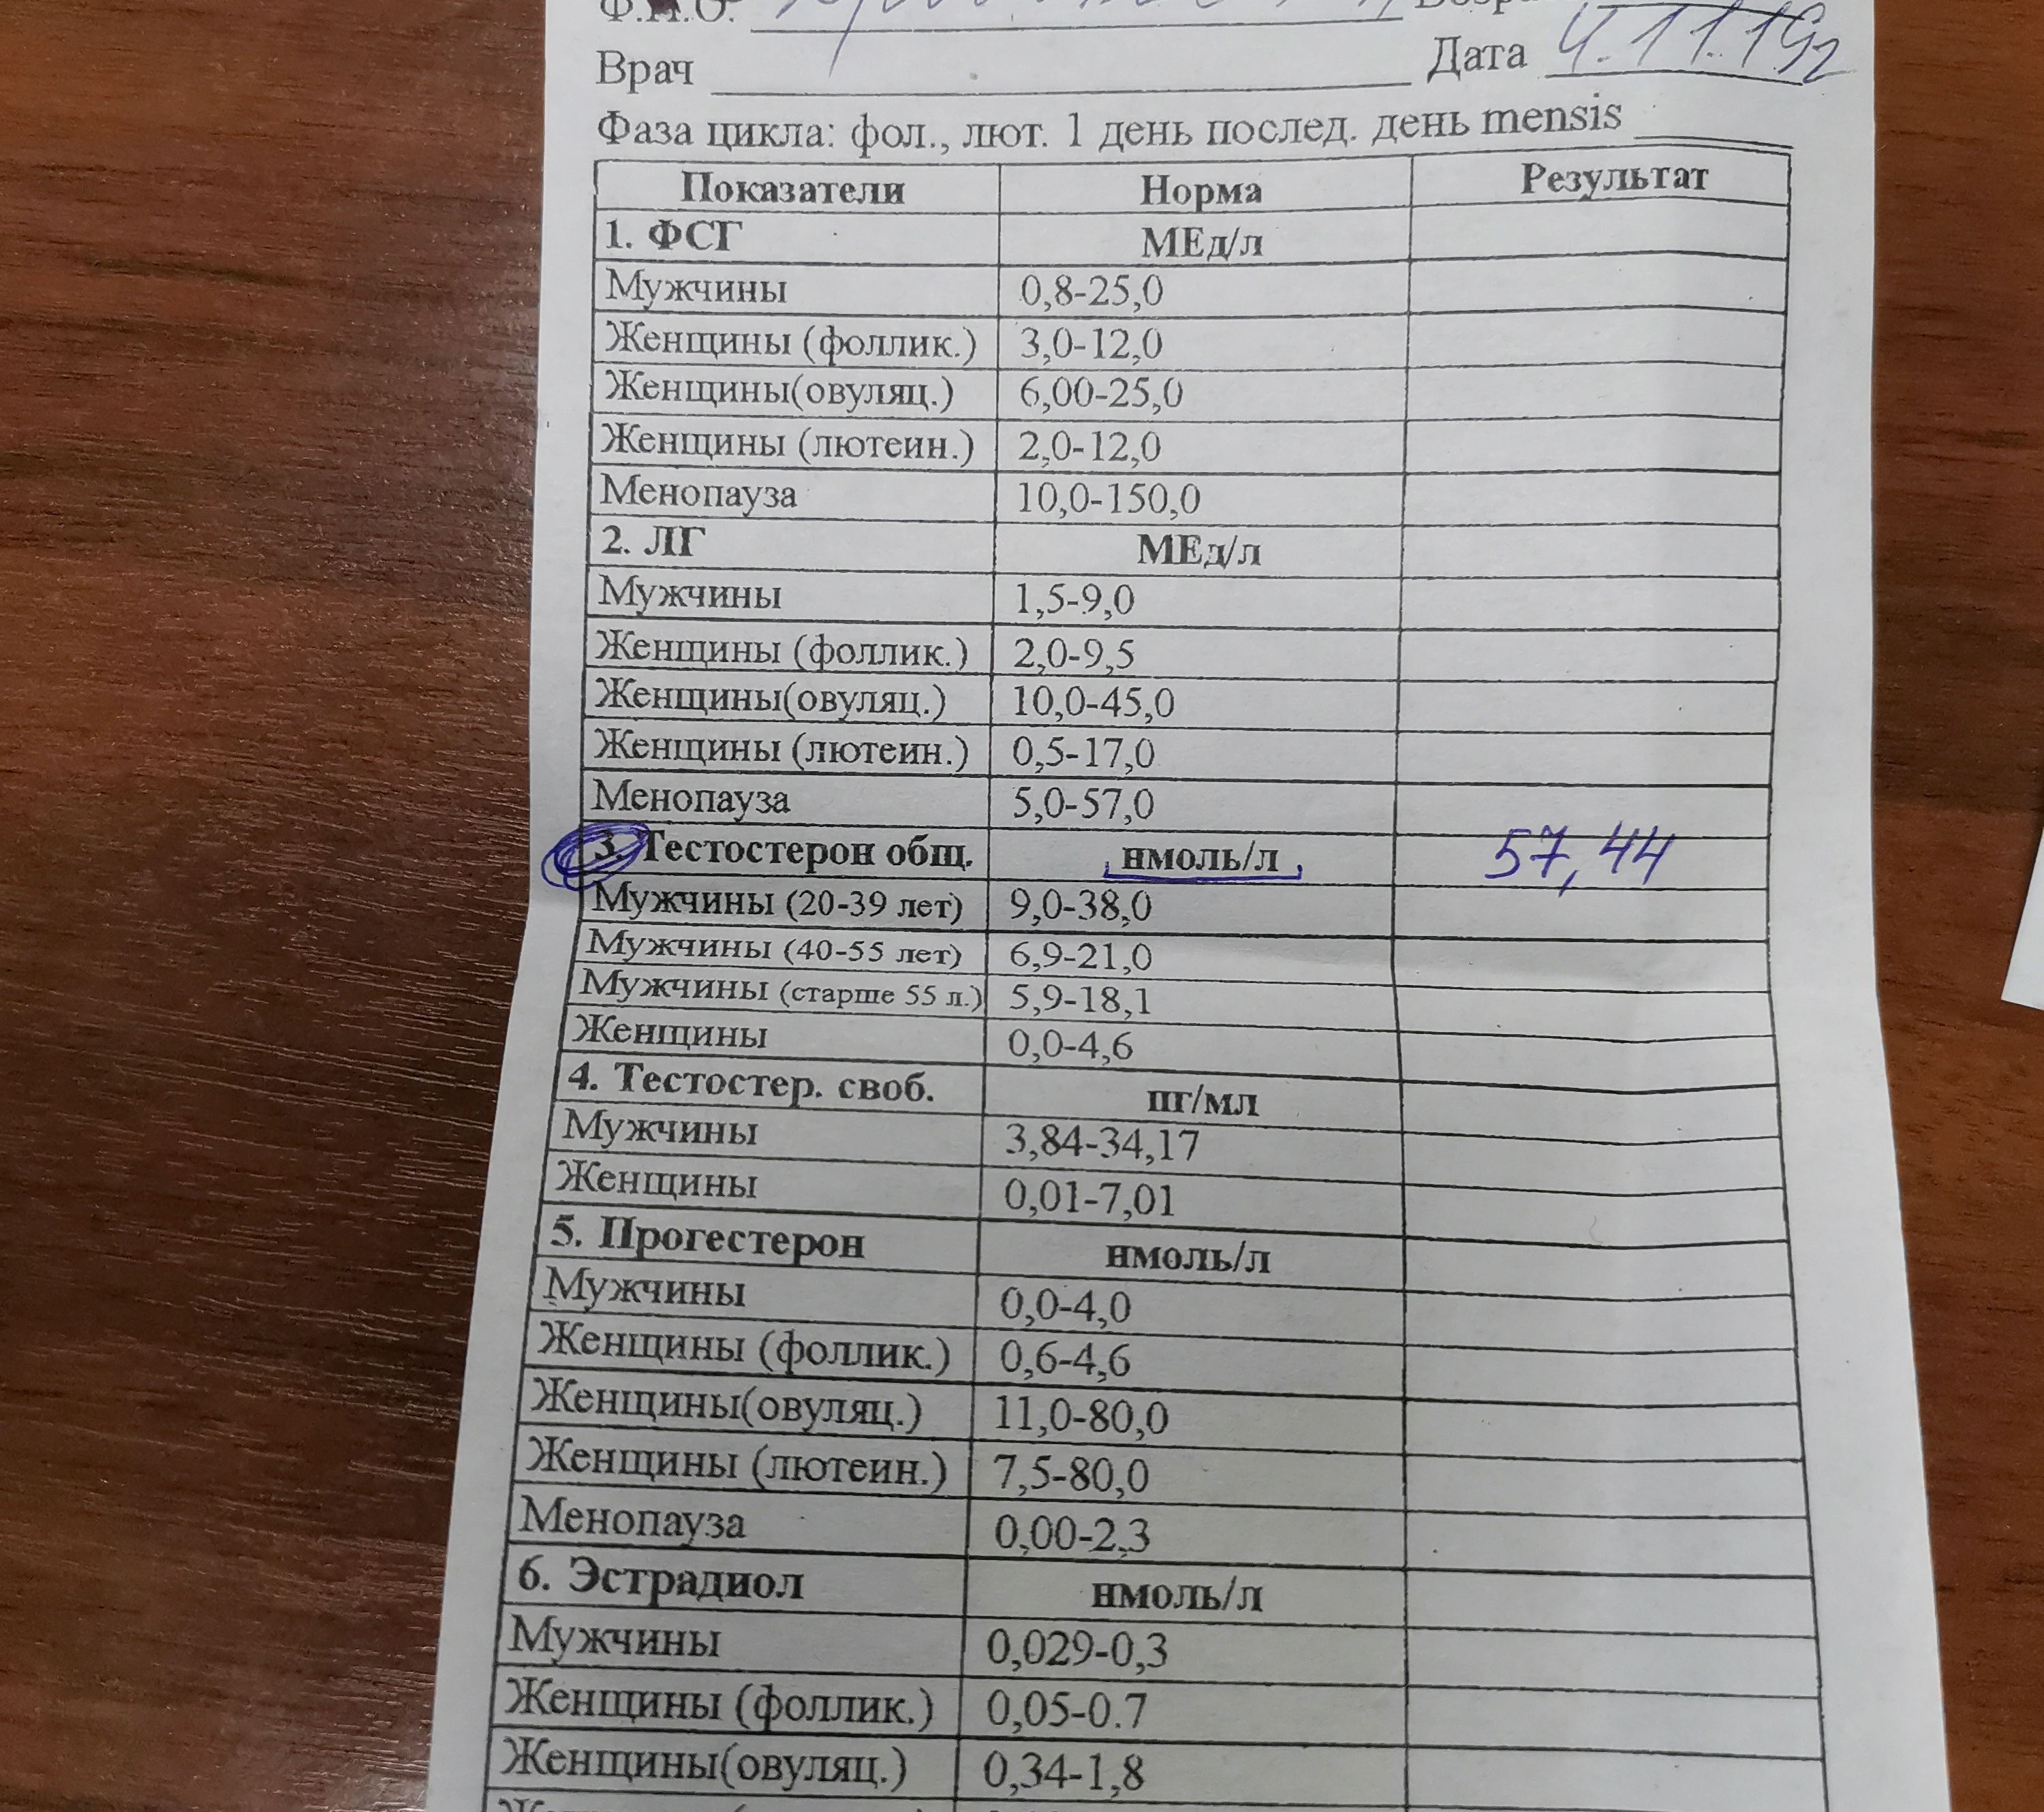 Ф.И.О.
Врач Дата 4.11.19г
Фаза цикла: фол., лют. 1 день послед. день mensis
Показатели Норма Результат
1. ФСГ МЕд/л
Мужчины 0,8-25,0
Женщины (фоллик.) 3,0-12,0
Женщины(овуляц.) 6,00-25,0
Женщины (лютеин.) 2,0-12,0
Менопауза 10,0-150,0
2. ЛГ МЕд/л
Мужчины 1,5-9,0
Женщины (фоллик.) 2,0-9,5
Женщины(овуляц.) 10,0-45,0
Женщины (лютеин.) 0,5-17,0
Менопауза 5,0-57,0
3. Тестостерон общ. нмоль/л 57,44
Мужчины (20-39 лет) 9,0-38,0
Мужчины (40-55 лет) 6,9-21,0
Мужчины (старше 55 л.) 5,9-18,1
Женщины 0,0-4,6
4. Тестостер. своб. пг/мл
Мужчины 3,84-34,17
Женщины 0,01-7,01
5. Прогестерон нмоль/л
Мужчины 0,0-4,0
Женщины (фоллик.) 0,6-4,6
Женщины(овуляц.) 11,0-80,0
Женщины (лютеин.) 7,5-80,0
Менопауза 0,00-2,3
6. Эстрадиол нмоль/л
Мужчины 0,029-0,3
Женщины (фоллик.) 0,05-0.7
Женщины(овуляц.) 0,34-1,8